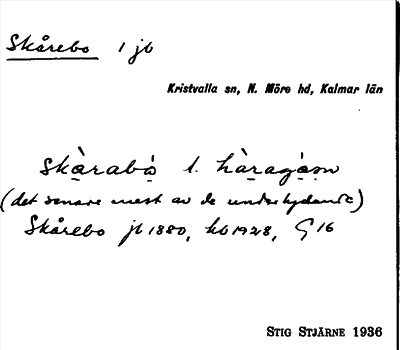 Skårebo 1 jb
Kristvalla sn, N. Möre hd, Kalmar län
skàrabò l. hàragạ̀ṣn
(det senare mest av de underlydande)
Skårebo jb 1880, kb 1928, G 16
STIG STJÄRNE 1936